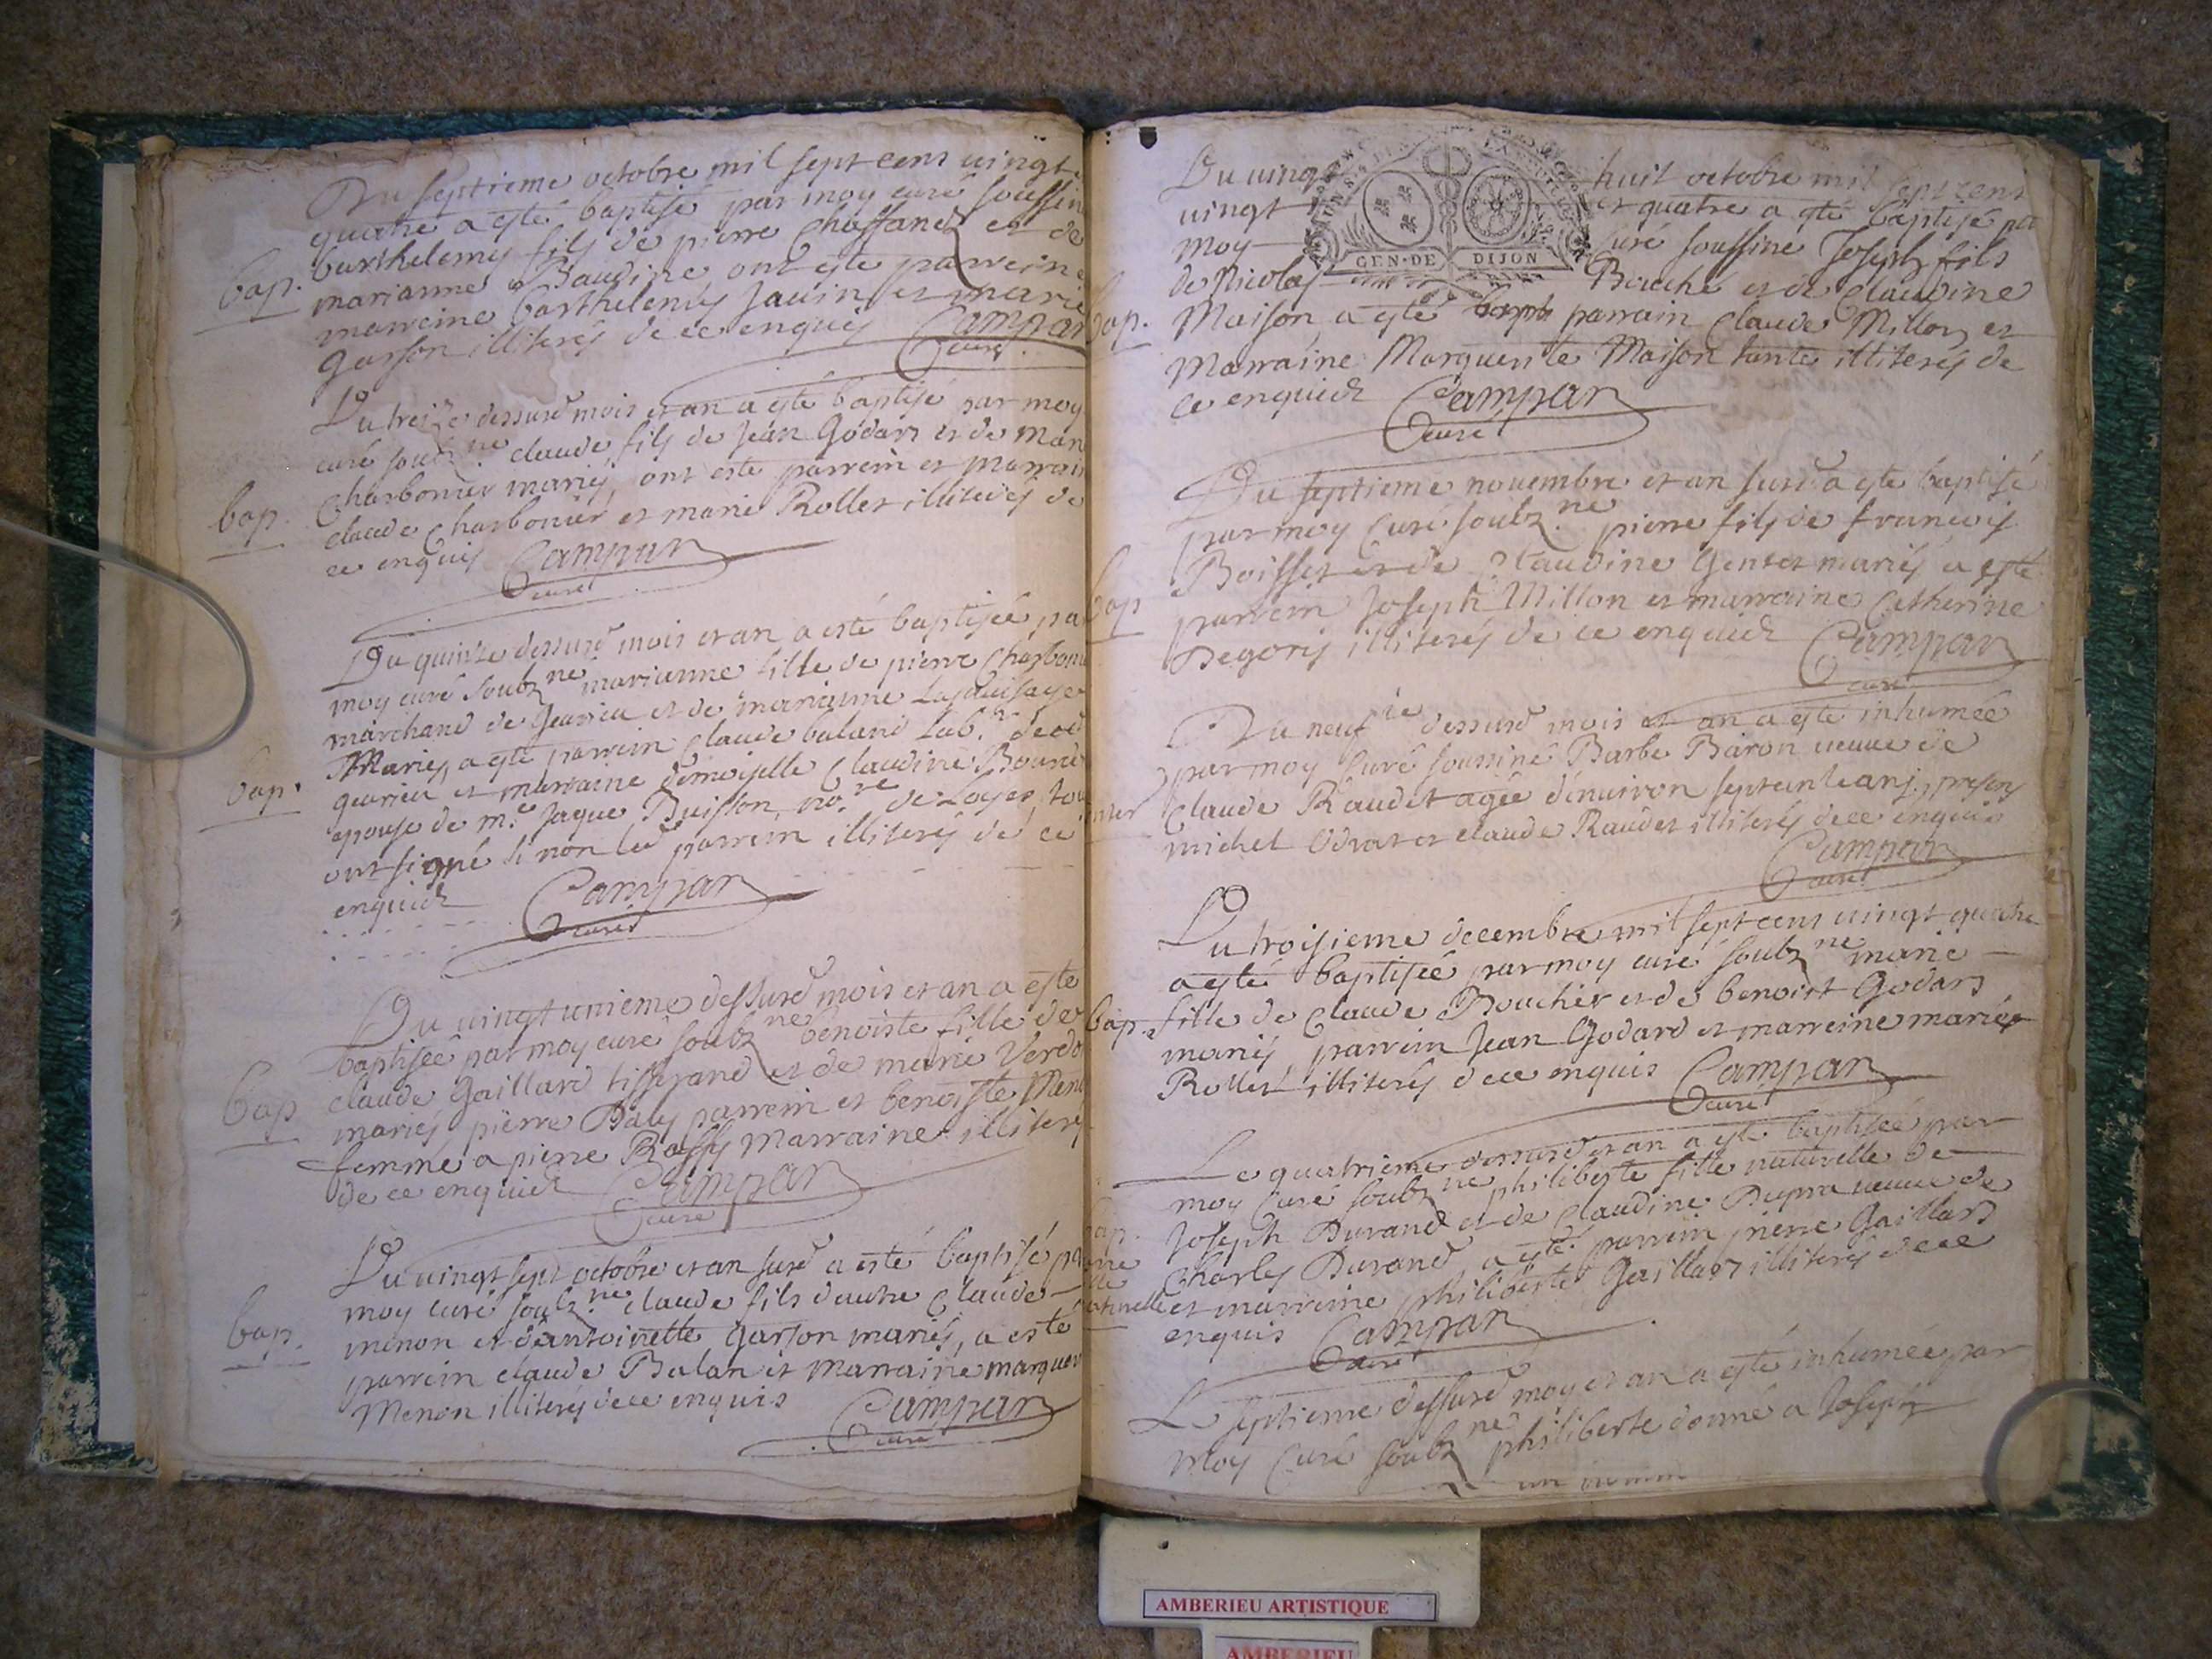 Du septieme octobre mil sept cens vingt
quatre a esté baptisé par moy curé soussin
bap. barthelemy fils de pierre Chaffaned et de
marianne Baudine ont este parreine
marreine barthelemy Jauin et marie
garson illiterés de ce enquis Campan
curé
Du treize dessusd mois et an a esté baptisé par moy
curé soubz.ne claude fils de Jean Godard et de Mari
Charbonier mariés, ont este parrein et marrain
bap. claude Charbonier et marie Rollet illiterés de
ce enquis Campan
curé
Du quinze dessusd mois et an a esté baptisée pa
moy curé soubz.ne marianne fille de pierre Charboni
marchand de geurieu et de marianne
Mariés, a esté parrein claude baland Lab.r deod
bap. geurieu et marraine demoiselle Claudine
epouse de m.e Jaque Buisson, no.re de Loyes, tou
ont signé si non led parrein illiterés de ce
enquich Campan
curé
Du vingt unieme dessusd mois et an a este
baptisée par moy curé soubz.ne benoiste fille de
claude Gaillard tisserand et de marie Verdo
bap mariés pierre Baly parrein et benoiste Meno
femme a pierre Rossy Marraine illiterés
de ce enquich Campan
curé
Du vingt sept octobre et an susd a esté baptisé pa
moy curé soubz.ne claude fils d'autre Claude
bap. menon et d'antoinette Garson mariés, a esté
parrein claude Balan et marraine marguer
Menon illiterés de ce enquis Campan
curé
Du vingt huit octobre mil sept cens
vingt et quatre a esté baptisé pa
moy curé soussine Joseph fils
GEN·DE DIJON
de Nicolas Bouché et de Claudine
bap. Maison a esté parrain Claude Millon et
Marraine Marguerite Maison tante illiterés de
ce enquich Campan
curé
Du septieme novembre et an susd a este baptisé
par moy Curé soubz.ne pierre fils de francois
Boisset et de Claudine Gentet mariés a esté
bap parrein Joseph Millon et marraine Catherine
Degory illiterés de ce enquich Campan
curé
Du neuf.ie dessusd mois et an a esté inhumée
par moy Curé soussiné Barbe Baron veuve de
Claude Raudet agée d'enuiron septente ans, presens
michel Odrat et claude Raudet illiterés de ce enquis
Campan
curé
Du troisieme decembre mil sept cens vingt quatre
a esté baptisée par moy curé soubz.ne marie
bap. fille de Claude Boucher et de benoist Godard
mariés, parrein Jean Godard et marreine marie
Rollet illiterés de ce enquis Campan
curé
Le quatrieme dessusd et an a esté baptisée par
moy Curé soubz.ne philiberte fille naturelle de
bap. Joseph Durand et de Claudine Dupra veuve de
Charles Durand, a esté parrein pierre Gaillard
et marreine philiberte Gaillard illiterés de ce
enquis Campan
curé
Le septieme dessusd moy et an a esté inhumée par
Moy Curé soubz.ne philiberte donné a Joseph
AMBERIEU ARTISTIQUE
AMBERIEU